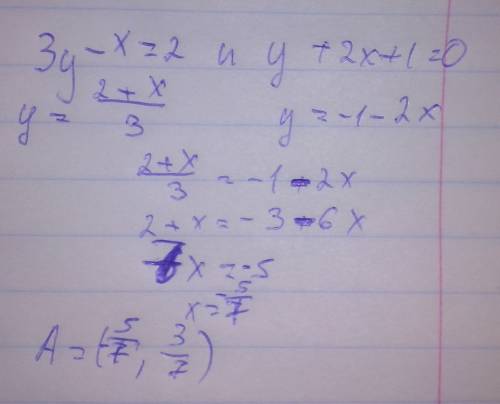 3y - x = 2 и y + 2x + 1 = 0
y = (2 + x)/3 y = -1 - 2x
(2 + x)/3 = -1 - 2x
2 + x = -3 - 6x
7x = -5
x = -5/7
A = (-5/7, 3/7)